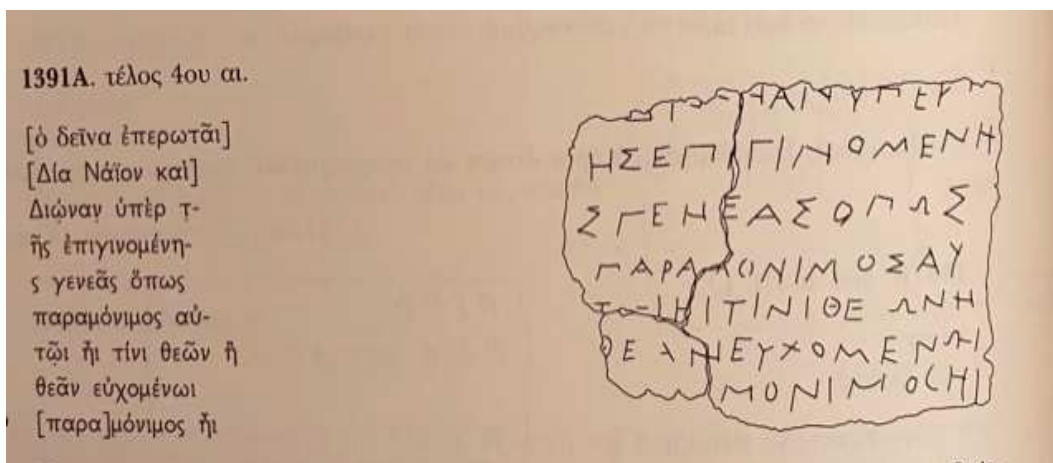 1391A. τέλος 4ου αι.
[ὁ δεῖνα ἐπερωτᾶι]
[Δία Νάϊον καὶ]
Διώναν ὑπὲρ τ-
ῆς ἐπιγινομένη-
ς γενεᾶς ὅπως
παραμόνιμος αὐ-
τῶι ἦι τίνι θεῶν ἢ
θεᾶν εὐχομένωι
[παρα]μόνιμος ἦι
ΗΣΕΠΙΓΙΝΟΜΕΝΗ
ΣΓΕΝΕΑΣΟΠΩΣ
ΠΑΡΑΜΟΝΙΜΟΣΑΥ
ΗΙΤΙΝΙΘΕΩΝΗ
ΘΕΑΝΕΥΧΟΜΕΝΩΙ
ΜΟΝΙΜΟCΗΙ